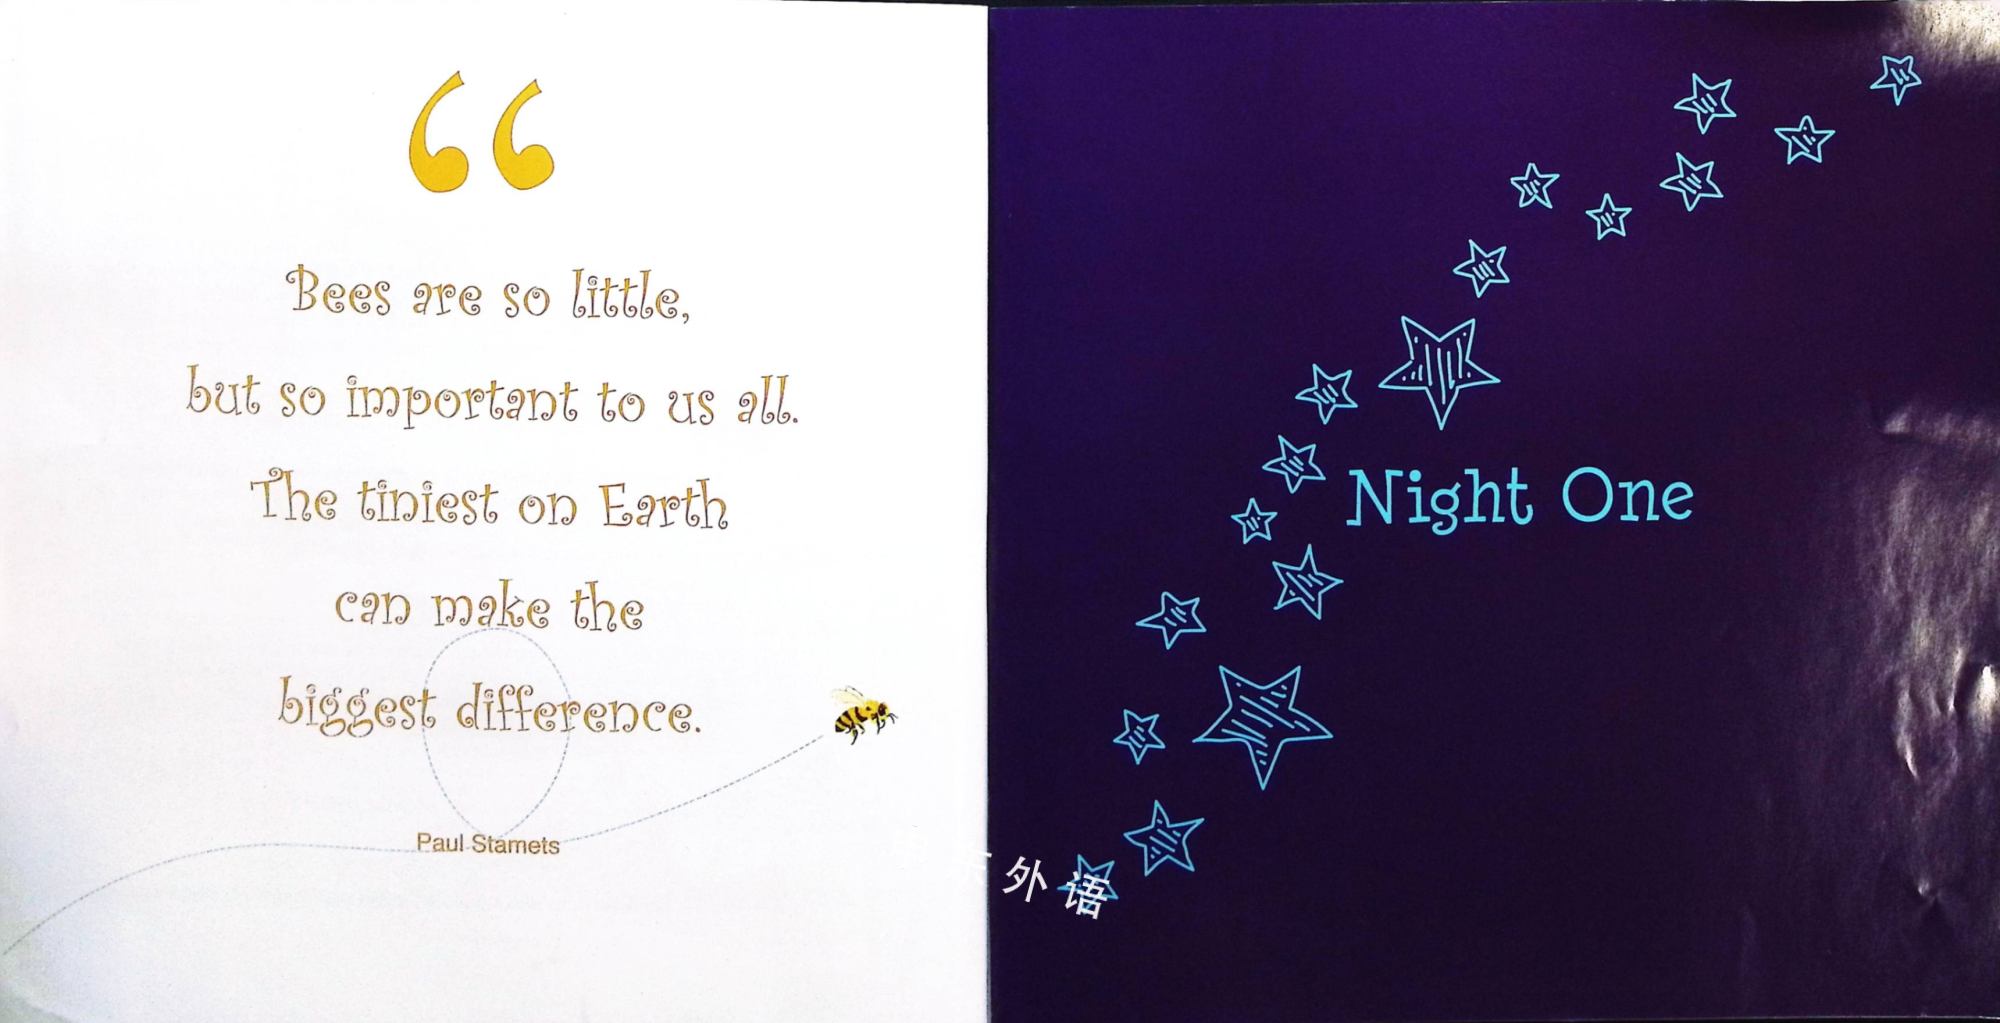 “
Bees are so little,
but so important to us all.
The tiniest on Earth
can make the
biggest difference.
Paul Stamets
Night One
外语